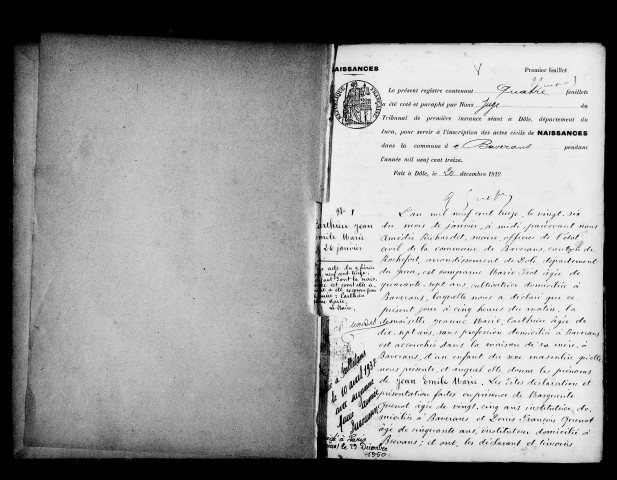 NAISSANCES
Premier feuillet
Le présent registre contenant Quatre feuillets
a été coté et paraphé par Nous Juge du
Tribunal de première instance séant à Dôle, département du
Jura, pour servir à l'inscription des actes civils de NAISSANCES
dans la commune d e Baverans pendant
l'année mil neuf cent treize.
Fait à Dôle, le 20 décembre 1912
RÉPUBLIQUE FRANÇAISE
No 1
Carthier Jean
Emile Marie
26 janvier
L'an mil neuf cent treize, le vingt six
du mois de janvier, à midi, pardevant nous
Amédée Richardet, maire, officier de l'état
civil de la commune de Baverans, canton de
Rochefort, arrondissement de Dole, département
du Jura, est comparue Marie âgée de
quarante sept ans, cultivatrice domiciliée à
Baverans, laquelle nous a déclaré que ce
présent jour à cinq heures du matin, la
demoiselle Jeanne Marie Carthier âgée de
dix sept ans, sans profession domiciliée à Baverans
est accouchée dans la maison de sa mère, à
Baverans, d'un enfant du sexe masculin qu'elle
nous présente, et auquel elle donne les prénoms
de Jean Emile Marie. Les dites déclaration et
présentation faites en présence de Marguerite
Quenot âgée de vingt cinq ans institutrice, do
miciliée à Baverans et Louis François Quenot
âgé de cinquante ans, instituteur domicilié à
Brevans; et ont, les déclarant et témoins
le 10 avril 1937
avec
à Paris
le 29 Décembre
1950